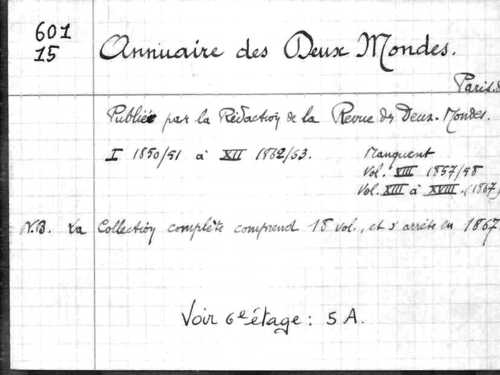 601
15
Annuaire des Deux Mondes.
Paris.
Publiée par la Rédaction de la Revue des Deux-Mondes.
I 1850/51 à XII 1862/63.
Manquent
Vol. XIII 1857/58
Vol. XIII à XVIII. (1867)
N.B. La Collection complète comprend 18 vol., et s'arrête en 1867
Voir 6e étage : 5 A.